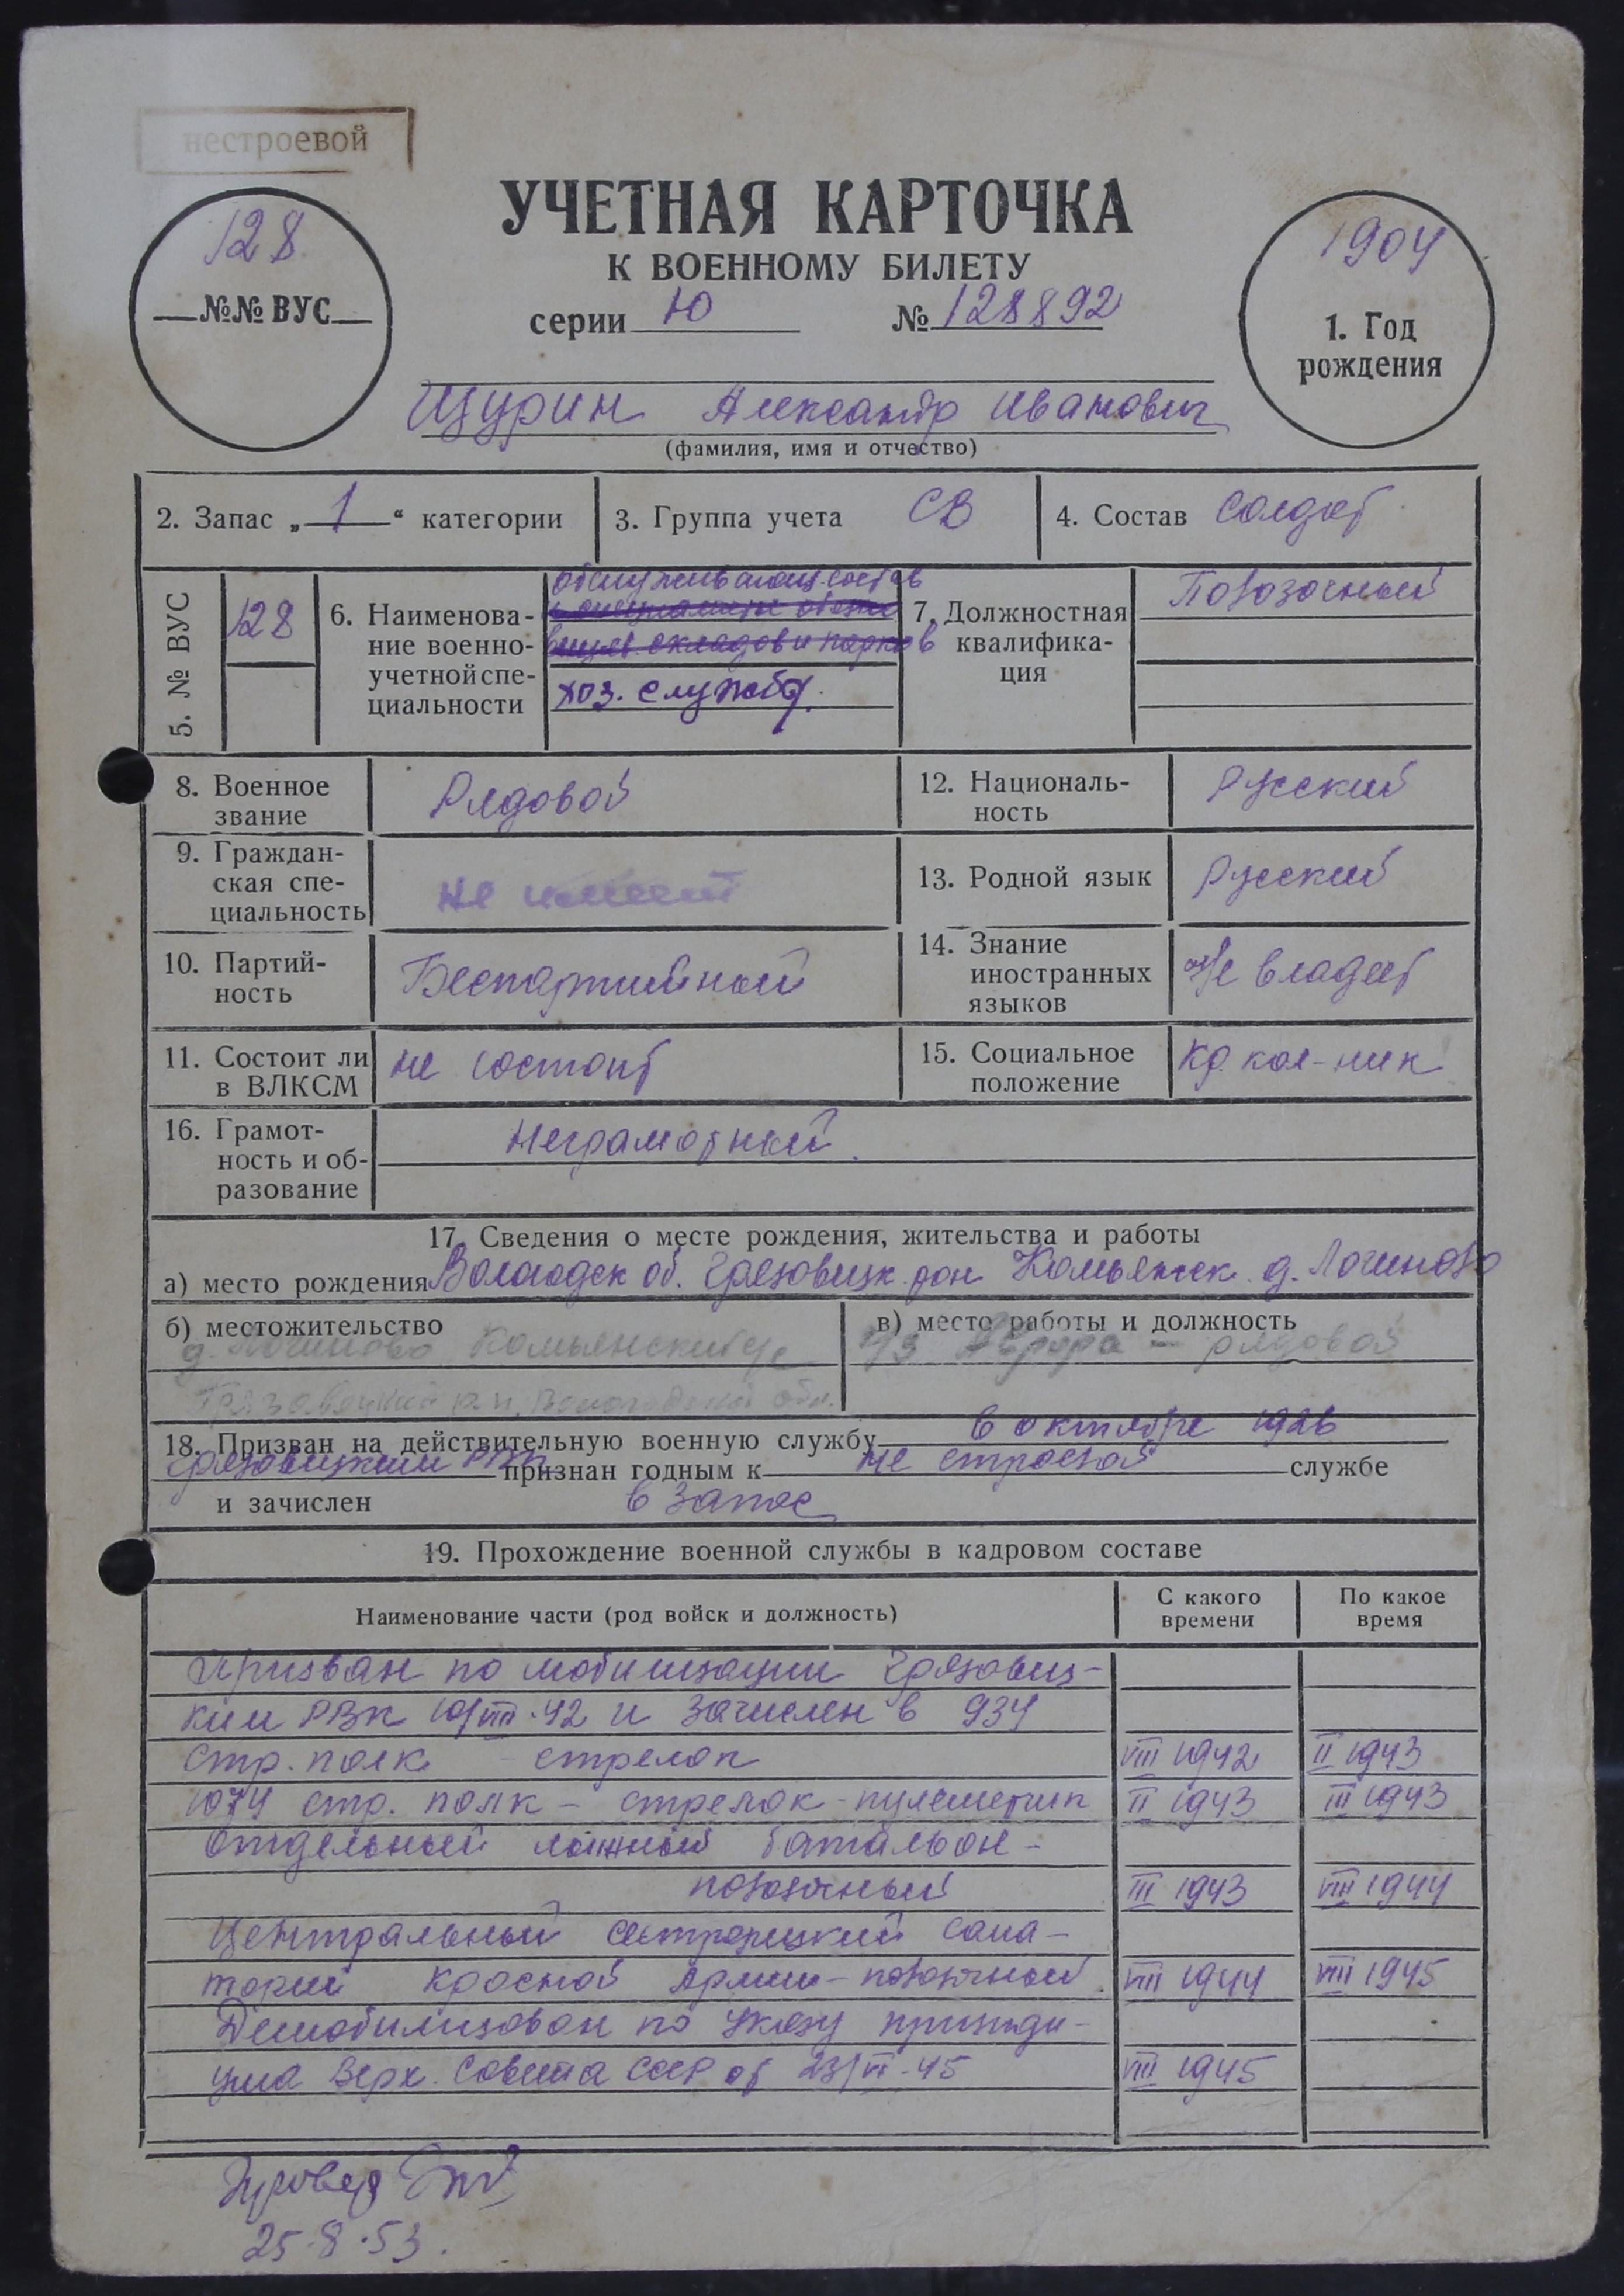 нестроевой
УЧЕТНАЯ КАРТОЧКА
К ВОЕННОМУ БИЛЕТУ
серии Ю № 128892
128
№№ ВУС
1904
1. Год
рождения
Щурин Александр Иванович
(фамилия, имя и отчество)
2. Запас „ 1 “ категории
3. Группа учета СВ
4. Состав Солдат
5. № ВУС
128
6. Наименова-
ние военно-
учетной спе-
циальности
обслуживающ. состав
складов и парков
хоз. службы.
7. Должностная
квалифика-
ция
Повозочный
8. Военное
звание
Рядовой
12. Националь-
ность
Русский
9. Граждан-
ская спе-
циальность
не имеет
13. Родной язык
Русский
10. Партий-
ность
Беспартийный
14. Знание
иностранных
языков
не владеет
11. Состоит ли
в ВЛКСМ
не состоит
15. Социальное
положение
кр. кол-ник
16. Грамот-
ность и об-
разование
Неграмотный.
17. Сведения о месте рождения, жительства и работы
а) место рождения Вологодск об. Грязовецк. рон Комьянск. д. Логиново
б) местожительство
д. Логиново Комьянский с/с
Грязовецкий р.н. Вологодской обл.
в) место работы и должность
Аврора – рядовой
18. Призван на действительную военную службу в октябре 1926
Грязовецким РВК признан годным к не строевой службе
и зачислен в запас
19. Прохождение военной службы в кадровом составе
Наименование части (род войск и должность)
С какого
времени
По какое
время
Призван по мобилизации Грязовец-
ким РВК 10/VIII-42 и зачислен в 934
стр. полк - стрелок VIII 1942 II 1943
1074 стр. полк – стрелок-пулеметчик II 1943 III 1943
Отдельный лыжный батальон –
повозочный III 1943 VIII 1944
Центральный сестрорецкий сана-
торий Красной Армии – повозочный VIII 1944 VIII 1945
Демобилизован по Указу президи-
ума Верх. Совета СССР от 23/VI-45 VIII 1945
25.8.53.